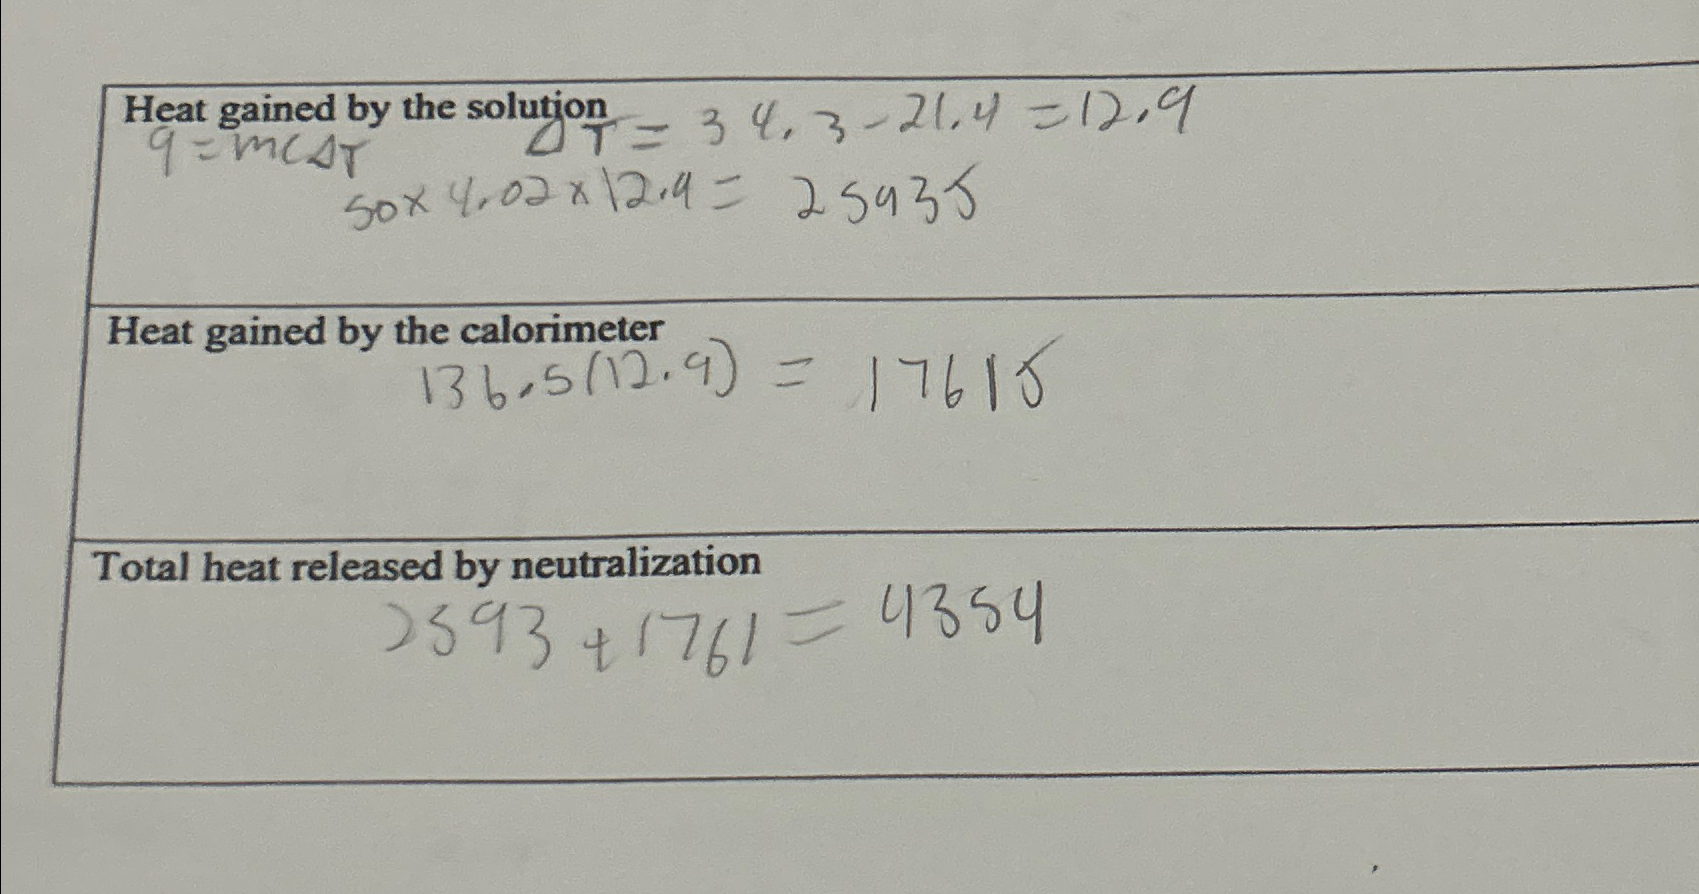 Heat gained by the solution ΔT = 34.3 - 21.4 = 12.9
q = mcΔT
50 x 4.02 x 12.9 = 2593J
Heat gained by the calorimeter
136.5(12.9) = 1761J
Total heat released by neutralization
2593 + 1761 = 4354